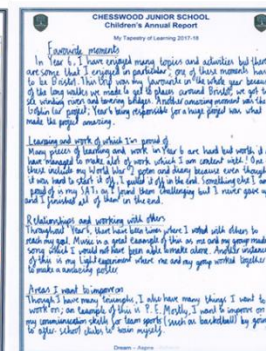 CHESSWOOD JUNIOR SCHOOL
Children's Annual Report
My Tapestry of Learning 2017-18
Favourite moments
In Year 6, I have enjoyed many topics and activities but there
are some that I enjoyed in particular; one of these moments has
to be Bristol. This trip was my favourite in the whole year because
of the long walks we made to get to places around Bristol; we got to
see winding rivers and towering bridges. Another amazing moment was the
Goblin Car project; Year 6 being responsible for a huge project was what
made the project amazing.
Learning and work of which I'm proud of
Many pieces of learning and work in Year 6 are hard but worth it; I
have managed to make alot of work which I am content with! One of
these include my World War 2 poem and diary because even though
it was hard to start it off, I pulled it off in the end. Something else I am
proud of is my SATs, as I found them challenging but I never gave up
and I finished all of them in the end.
Relationships and working with others
Throughout Year 6, there have been times where I worked with others to
reach my goal. Music is a great example of this as me and my group made
song which I would not have been able to make alone. Another instance
of this is my Light experiment where me and my group worked together
to make a amazing poster.
Areas I want to improve on
Though I have many triumphs, I also have many things I want to
work on; an example of this is P.E. Mostly, I want to improve on
my communication skills for team sports (such as basketball) by going
to after school clubs to train myself.
Dream - Aspire